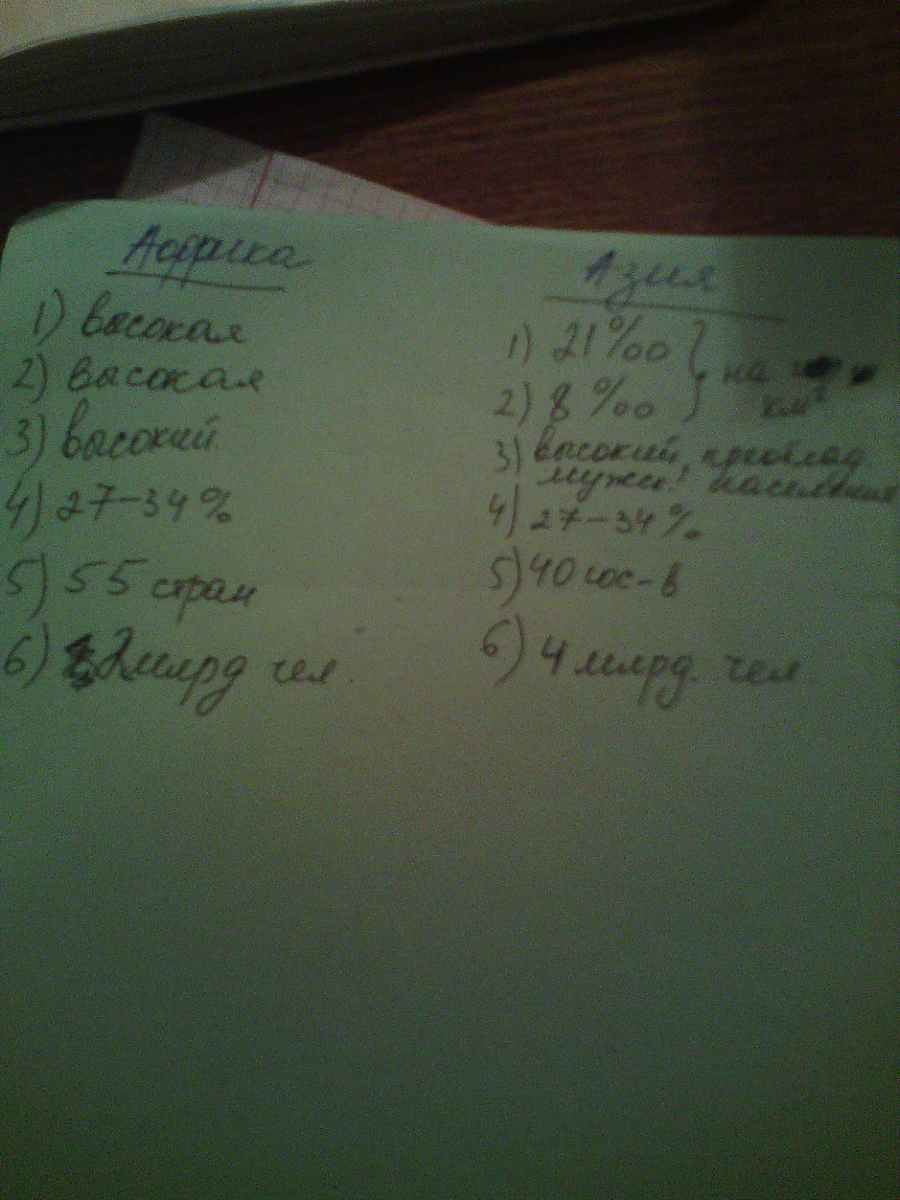 Африка
1) высокая
2) высокая
3) высокий
4) 27-34%
5) 55 стран
6) 2 млрд чел.
Азия
1) 21‰ } на
2) 8‰ } км²
3) высокий, преоблад.
мужск. населения
4) 27-34%
5) 40 гос-в
6) 4 млрд. чел.